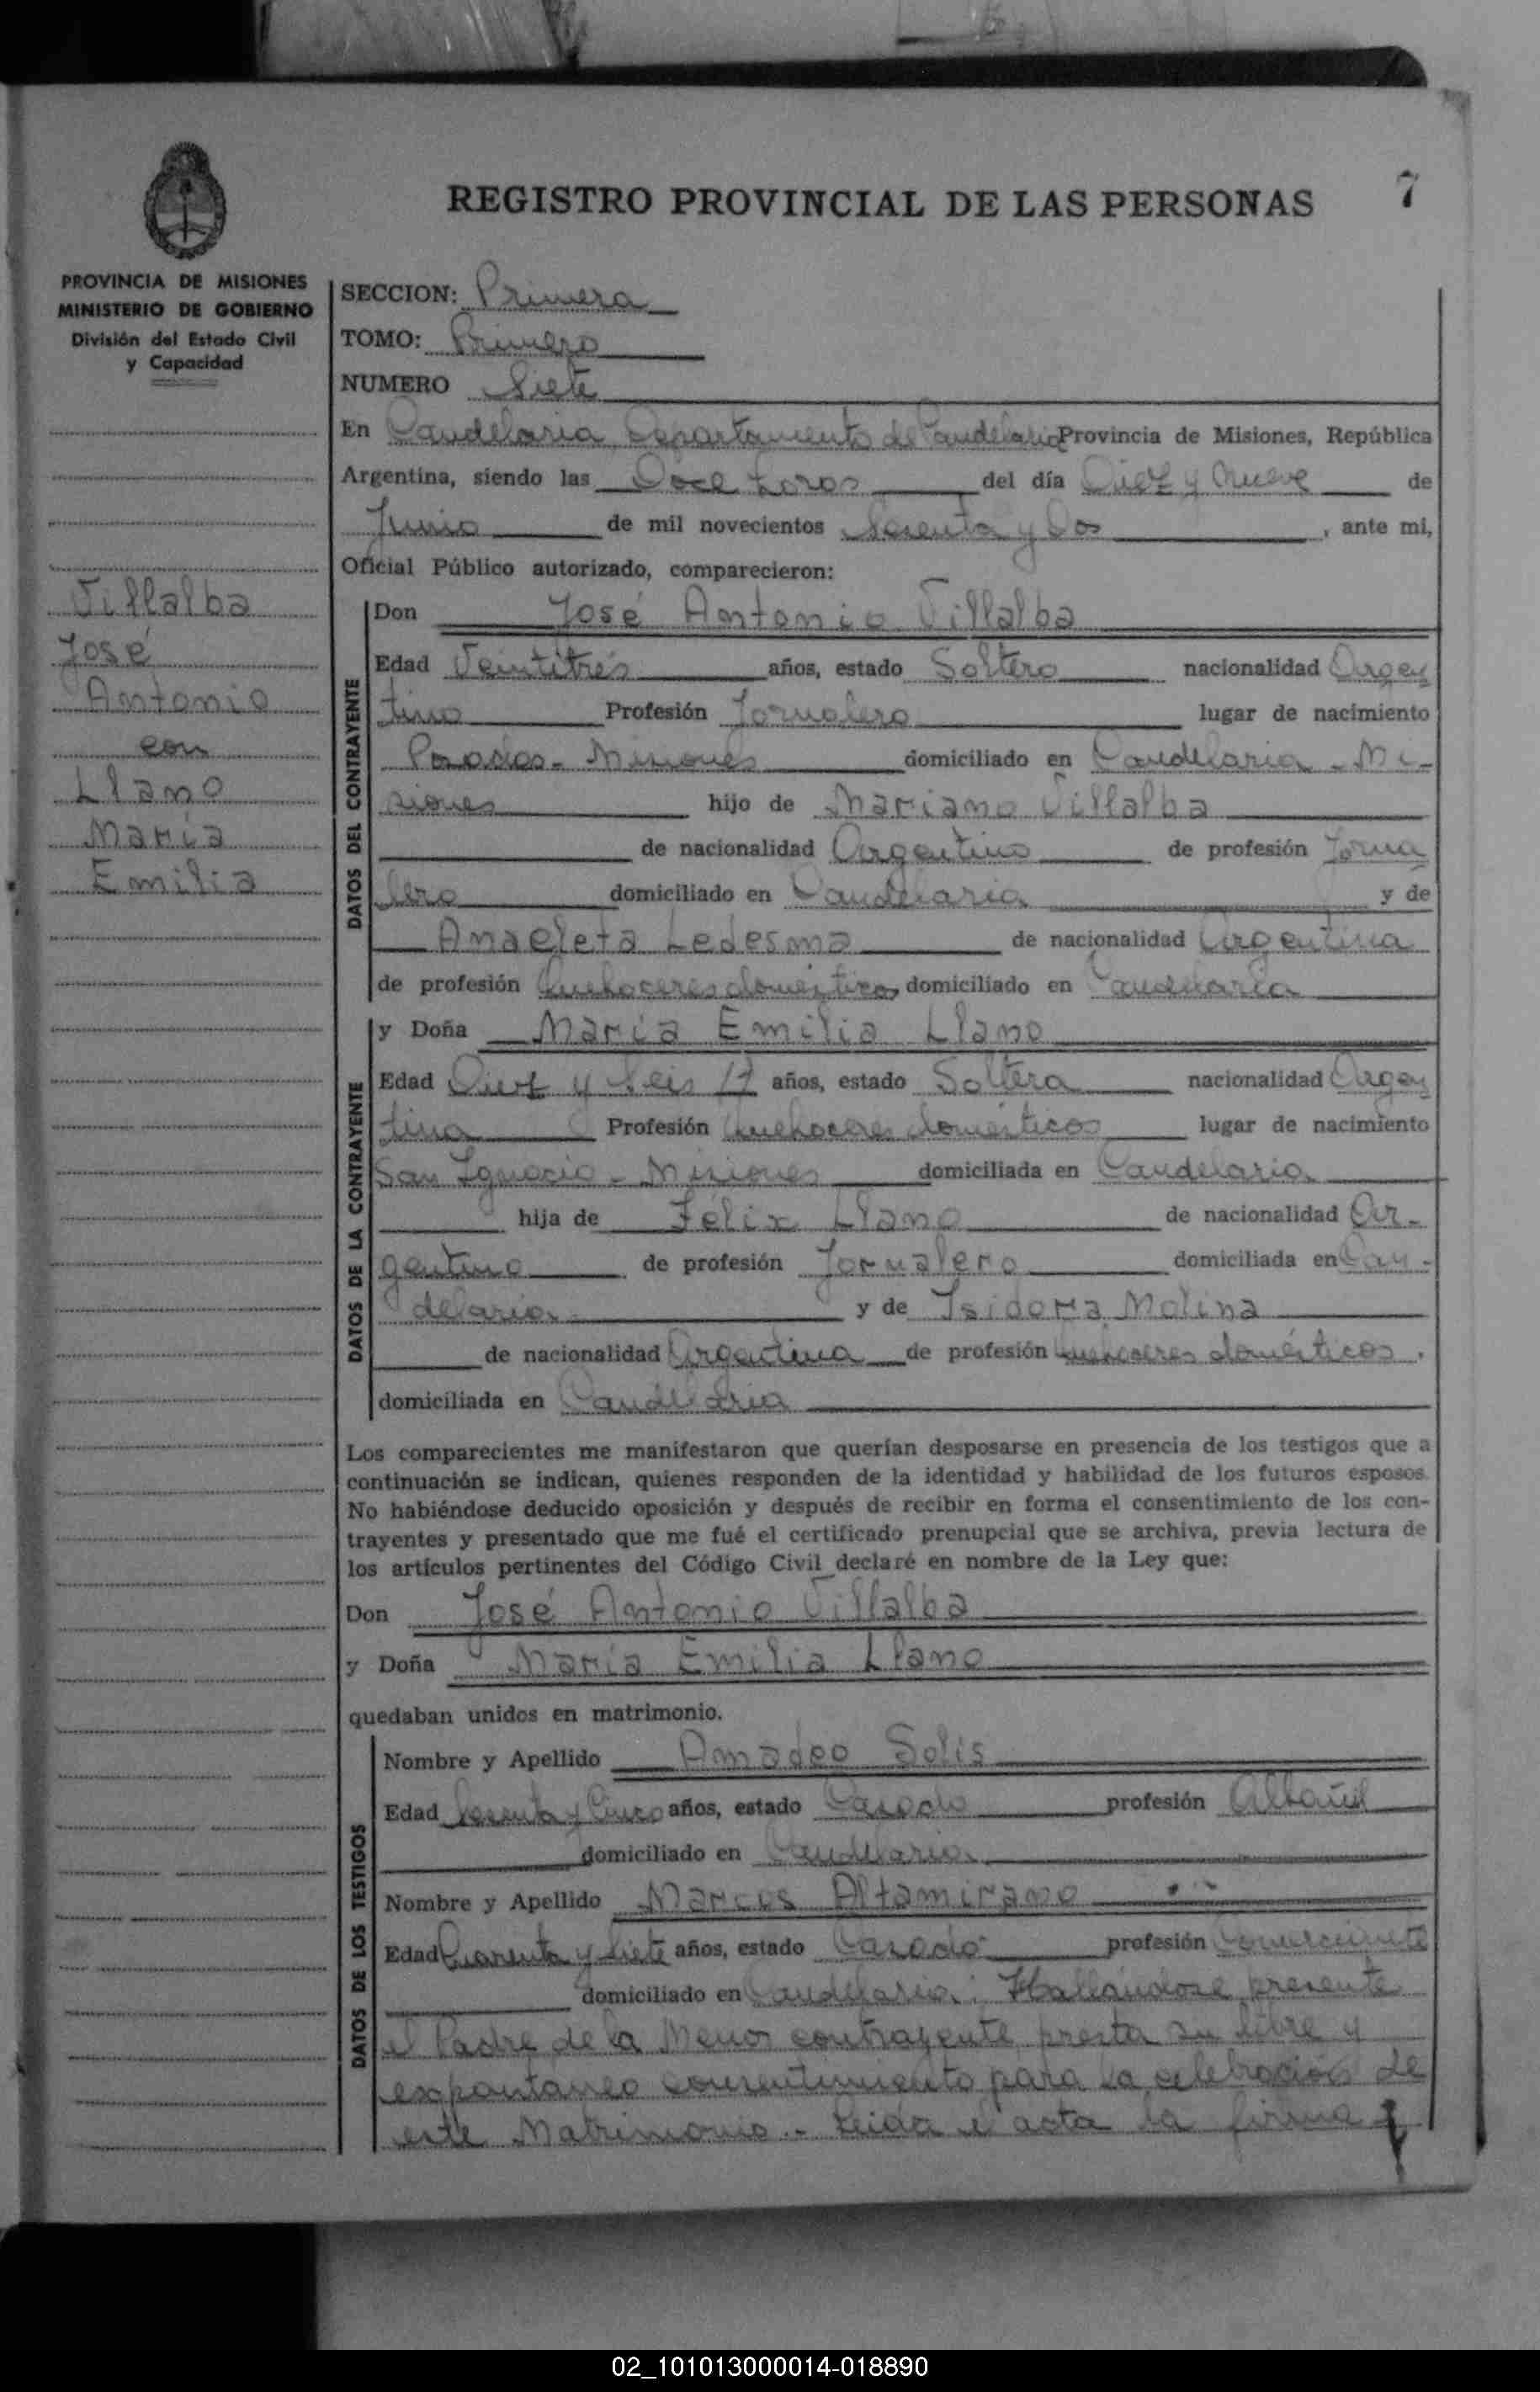 REGISTRO PROVINCIAL DE LAS PERSONAS 7
PROVINCIA DE MISIONES
MINISTERIO DE GOBIERNO
División del Estado Civil
y Capacidad
Villalba
José
Antonio
con
Llano
María
Emilia
SECCION: Primera
TOMO: Primero
NUMERO Siete
En Candelaria Departamento de Candelaria Provincia de Misiones, República
Argentina, siendo las Doce horas del día Diez y Nueve de
Junio de mil novecientos Sesenta y Dos, ante mi,
Oficial Público autorizado, comparecieron:
DATOS DEL CONTRAYENTE
Don José Antonio Villalba
Edad Veintitrés años, estado Soltero nacionalidad Argen
tino Profesión Jornalero lugar de nacimiento
Posadas - Misiones domiciliado en Candelaria - Mi-
siones hijo de Mariano Villalba
de nacionalidad Argentino de profesión Jorna
lero domiciliado en Candelaria y de
Anacleta Ledesma de nacionalidad Argentina
de profesión Quehaceres domésticos domiciliado en Candelaria
DATOS DE LA CONTRAYENTE
y Doña María Emilia Llano
Edad Diez y Seis años, estado Soltera nacionalidad Argen
tina Profesión Quehaceres domésticos lugar de nacimiento
San Ignacio - Misiones domiciliada en Candelaria
hija de Felix Llano de nacionalidad Ar-
gentino de profesión Jornalero domiciliada en Can-
delaria y de Isidora Molina
de nacionalidad Argentina de profesión Quehaceres domésticos.
domiciliada en Candelaria
Los comparecientes me manifestaron que querían desposarse en presencia de los testigos que a
continuación se indican, quienes responden de la identidad y habilidad de los futuros esposos.
No habiéndose deducido oposición y después de recibir en forma el consentimiento de los con-
trayentes y presentado que me fué el certificado prenupcial que se archiva, previa lectura de
los artículos pertinentes del Código Civil declaré en nombre de la Ley que:
Don José Antonio Villalba
y Doña María Emilia Llano
quedaban unidos en matrimonio.
DATOS DE LOS TESTIGOS
Nombre y Apellido Amadeo Solis
Edad Sesenta y Cinco años, estado Casado profesión Albañil
domiciliado en Candelaria
Nombre y Apellido Marcos Altamirano
Edad Cuarenta y Siete años, estado Casado profesión Comerciante
domiciliado en Candelaria: Hallándose presente
el Padre de la Menor contrayente presta su libre y
expontaneo consentimiento para la celebración de
este Matrimonio.- Leida el acta la firma
02_101013000014-018890